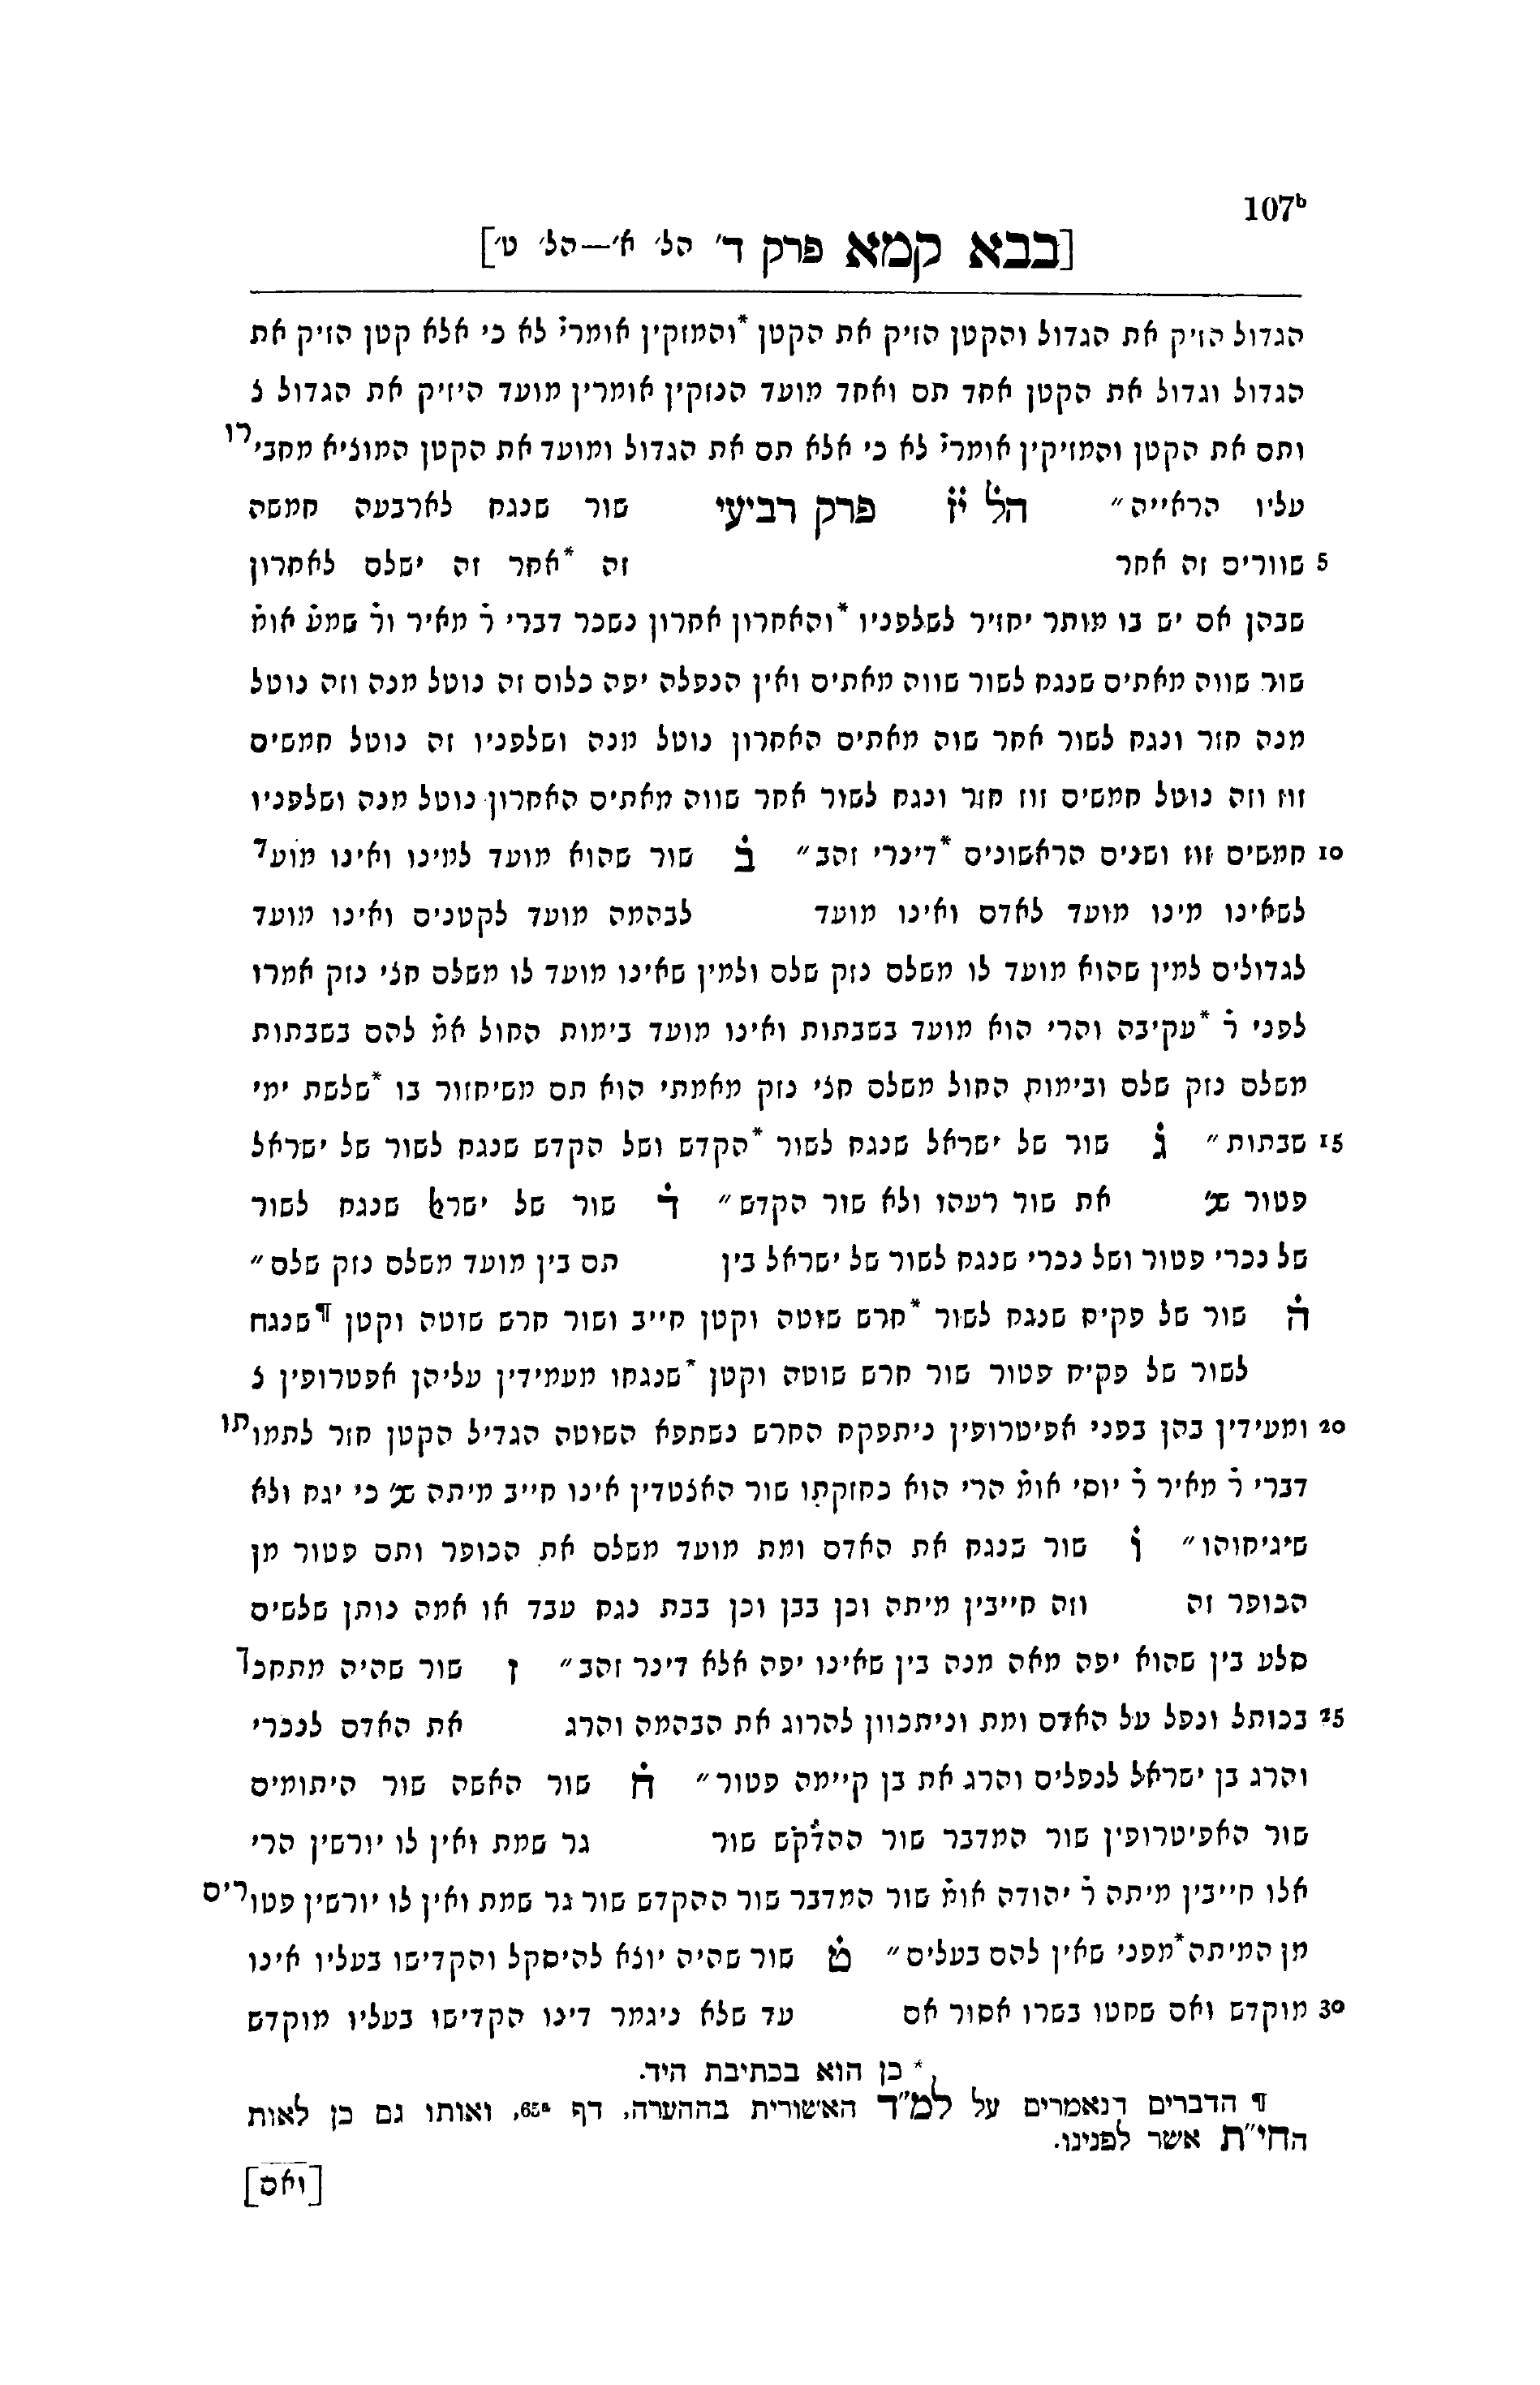 107ᵇ
[בבא קמא פרק ד׳ הל׳ א׳—הל׳ ט׳]
הגדול הזיק את הגדול והקטן הזיק את הקטן *והמזקין אומרי̇ לא כי אלא קטן הזיק את
הגדול וגדול את הקטן אחד תם ואחד מועד הנזקין אומרין מועד היזיק את הגדול ל
ותם את הקטן והמזיקין אומרי̇ לא כי אלא תם את הגדול ומועד את הקטן המוציא מחבירו
עליו הראייה״ הל̇ י̇ז̇ פרק רביעי שור שנגח לארבעה חמשה
5 שוורים זה אחר זה *אחר זה ישלם לאחרון
שבהן אם יש בו מותר יחזיר לשלפניו *והאחרון אחרון נשכר דברי ר̇ מאיר ור̇ שמע̇ אומ̇
שור שווה מאתים שנגח לשור שווה מאתים ואין הנפלה יפה כלום זה נוטל מנה וזה נוטל
מנה חזר ונגח לשור אחר שוה מאתים האחרון נוטל מנה ושלפניו זה נוטל חמשים
זוז וזה נוטל חמשים זוז חזר ונגח לשור אחר שווה מאתים האחרון נוטל מנה ושלפניו
10 חמשים זוז ושנים הראשונים *דינרי זהב״ ב̇ שור שהוא מועד למינו ואינו מועד
לשאינו מינו מועד לאדם ואינו מועד לבהמה מועד לקטנים ואינו מועד
לגדולים למין שהוא מועד לו משלם נזק שלם ולמין שאינו מועד לו משלם חצי נזק אמרו
לפני ר̇ *עקיבה והרי הוא מועד בשבתות ואינו מועד בימות החול אמ̇ להם בשבתות
משלם נזק שלם ובימות החול משלם חצי נזק מאמתי הוא תם משיחזור בו *שלשת ימי
15 שבתות״ ג̇ שור של ישראל שנגח לשור *הקדש ושל הקדש שנגח לשור של ישראל
פטור שנ׳ את שור רעהו ולא שור הקדש״ ד̇ שור של ישראל שנגח לשור
של נכרי פטור ושל נכרי שנגח לשור של ישראל בין תם בין מועד משלם נזק שלם״
ה̇ שור של פקיח שנגח לשור *חרש שוטה וקטן חייב ושור חרש שוטה וקטן ¶שנגח
לשור של פקיח פטור שור חרש שוטה וקטן *שנגחו מעמידין עליהן אפטרופין ל
20 ומעידין בהן בפני אפיטרופין ניתפקח החרש נשתפא השוטה הגדיל הקטן חזר לתמותו
דברי ר̇ מאיר ר̇ יוסי אומ̇ הרי הוא כחזקתו שור האצטדין אינו חייב מיתה שנ׳ כי יגח ולא
שיגיחוהו״ ו̇ שור שנגח את האדם ומת מועד משלם את הכופר ותם פטור מן
הכופר זה וזה חייבין מיתה וכן בבן וכן בבת נגח עבד או אמה נותן שלשים
סלע בין שהוא יפה מאה מנה בין שאינו יפה אלא דינר זהב״ ז̇ שור שהיה מתחכך
25 בכותל ונפל על האדם ומת וניתכוון להרוג את הבהמה והרג את האדם לנכרי
והרג בן ישראל לנפלים והרג את בן קיימה פטור״ ח̇ שור האשה שור היתומים
שור האפיטרופין שור המדבר שור ההד̇ק̇ש שור גר שמת ואין לו יורשין הרי
אלו חייבין מיתה ר̇ יהודה אומ̇ שור המדבר שור ההקדש שור גר שמת ואין לו יורשין פטורים
מן המיתה*מפני שאין להם בעלים״ ט̇ שור שהיה יוצא להיסקל והקדישו בעליו אינו
30 מוקדש ואם שחטו בשרו אסור אם עד שלא ניגמר דינו הקדישו בעליו מוקדש
* כן הוא בכתיבת היד.
¶ הדברים הנאמרים על למ״ד האשורית בההערה, דף 65ᵃ, ואותו גם כן לאות
החי״ת אשר לפנינו.
[ואם]